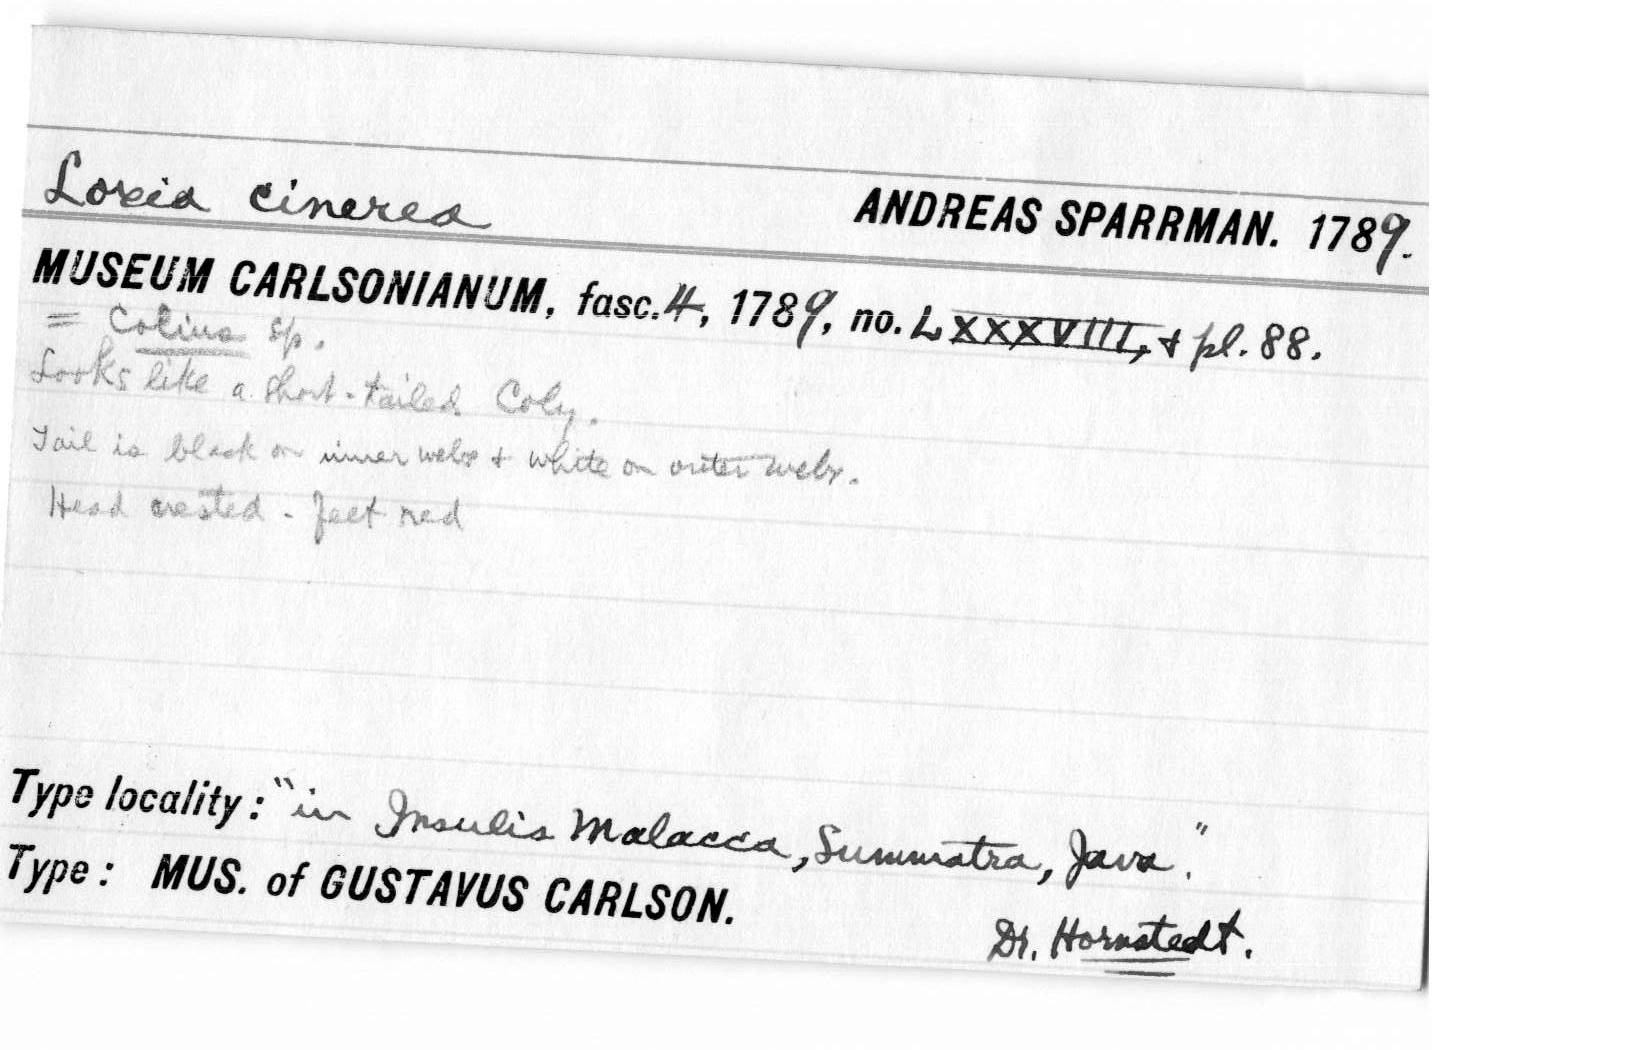 Loxia cinerea ANDREAS SPARRMAN. 1789.
MUSEUM CARLSONIANUM, fasc. 4, 1789, no. LXXXVIII, & pl. 88.
= Colius sp.
Looks like a short-tailed Coly.
Tail is black on inner webs & white on outer webs.
Head crested - feet red
Type locality: "in Insulis Malacca, Summatra, Java."
Type: MUS. of GUSTAVUS CARLSON.
Dr. Hornstedt.